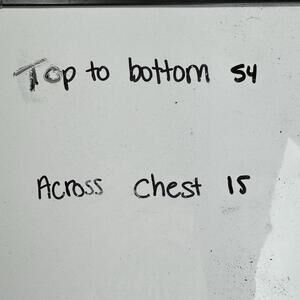 Top to bottom 54
Across Chest 15